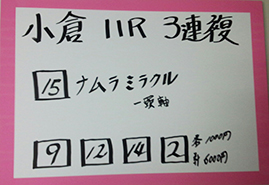 小倉 11R 3連複
15 ナムラミラクル
一頭軸
9 12 14 2 各1000円
計6000円